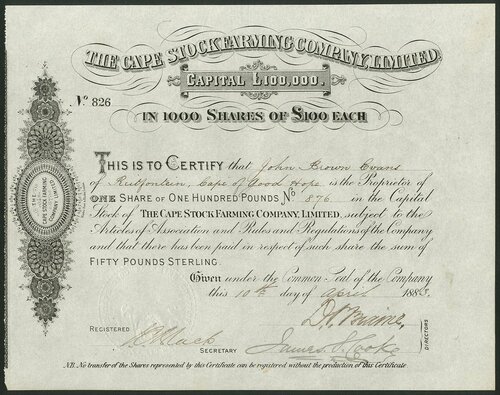 THE CAPE STOCK FARMING COMPANY, LIMITED
CAPITAL £100,000.
No. 826
IN 1000 SHARES OF £100 EACH
THIS IS TO CERTIFY that John Brown Evans
of Rietfontein, Cape of Good Hope is the Proprietor of
ONE SHARE OF ONE HUNDRED POUNDS No 876 in the Capital
Stock of THE CAPE STOCK FARMING COMPANY, LIMITED, subject to the
Articles of Association and Rules and Regulations of the Company
and that there has been paid in respect of such share the sum of
FIFTY POUNDS STERLING.
Given under the Common Seal of the Company
this 10th day of April 1883.
REGISTERED
SECRETARY
James Cooke
DIRECTORS
NB. No transfer of the Shares represented by this Certificate can be registered without the production of this Certificate
THE CAPE STOCK FARMING COMPANY, LIMITED.